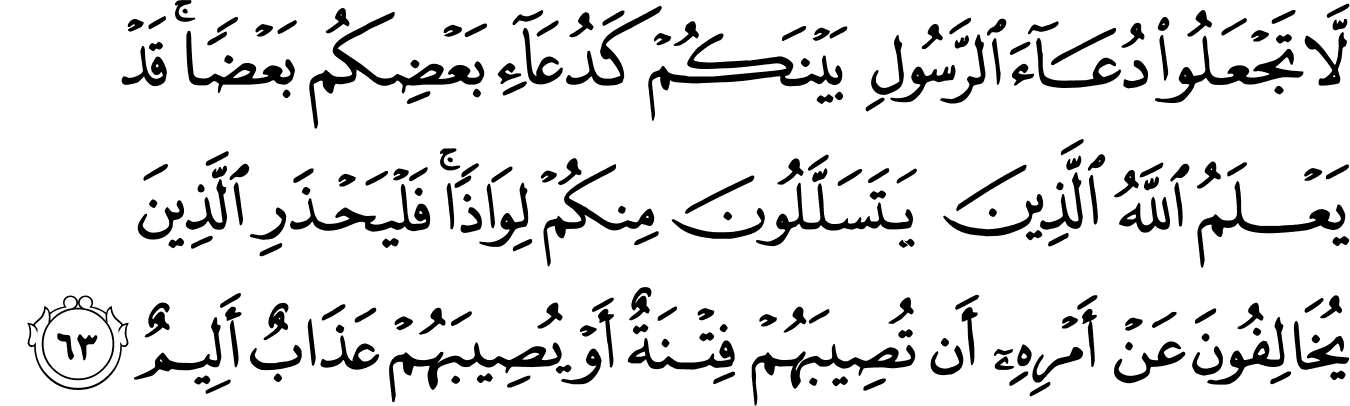 لَّا تَجْعَلُوا۟ دُعَآءَ ٱلرَّسُولِ بَيْنَكُمْ كَدُعَآءِ بَعْضِكُم بَعْضًا ۚ قَدْ
يَعْلَمُ ٱللَّهُ ٱلَّذِينَ يَتَسَلَّلُونَ مِنكُمْ لِوَاذًا ۚ فَلْيَحْذَرِ ٱلَّذِينَ
يُخَالِفُونَ عَنْ أَمْرِهِۦٓ أَن تُصِيبَهُمْ فِتْنَةٌ أَوْ يُصِيبَهُمْ عَذَابٌ أَلِيمٌ ٦٣